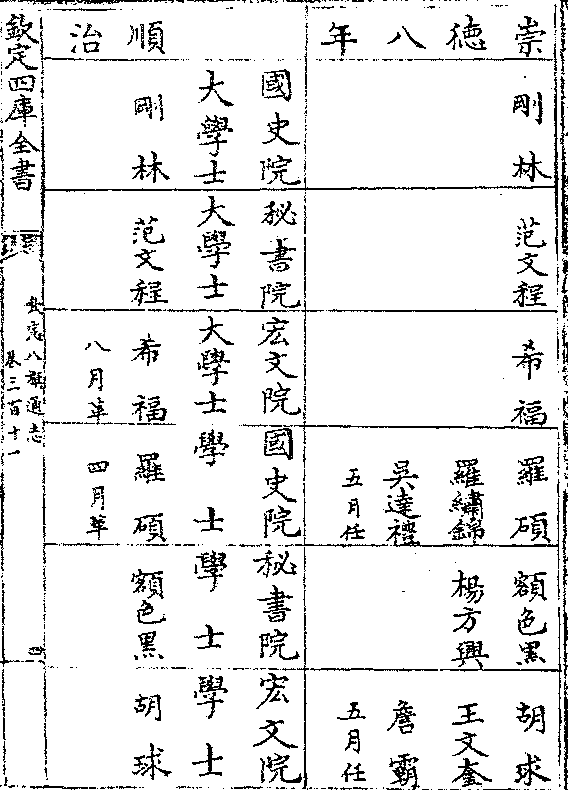 崇德八年
剛林
范文程
希福
羅碩
羅繡錦
吳達禮
五月任
額色黑
楊方興
胡球
王文奎
詹霸
五月任
順治
國史院大學士
剛林
秘書院大學士
范文程
宏文院大學士
希福
八月革
國史院學士
羅碩
四月革
秘書院學士
額色黑
宏文院學士
胡球
欽定四庫全書
欽定八旗通志
卷三百十一
四